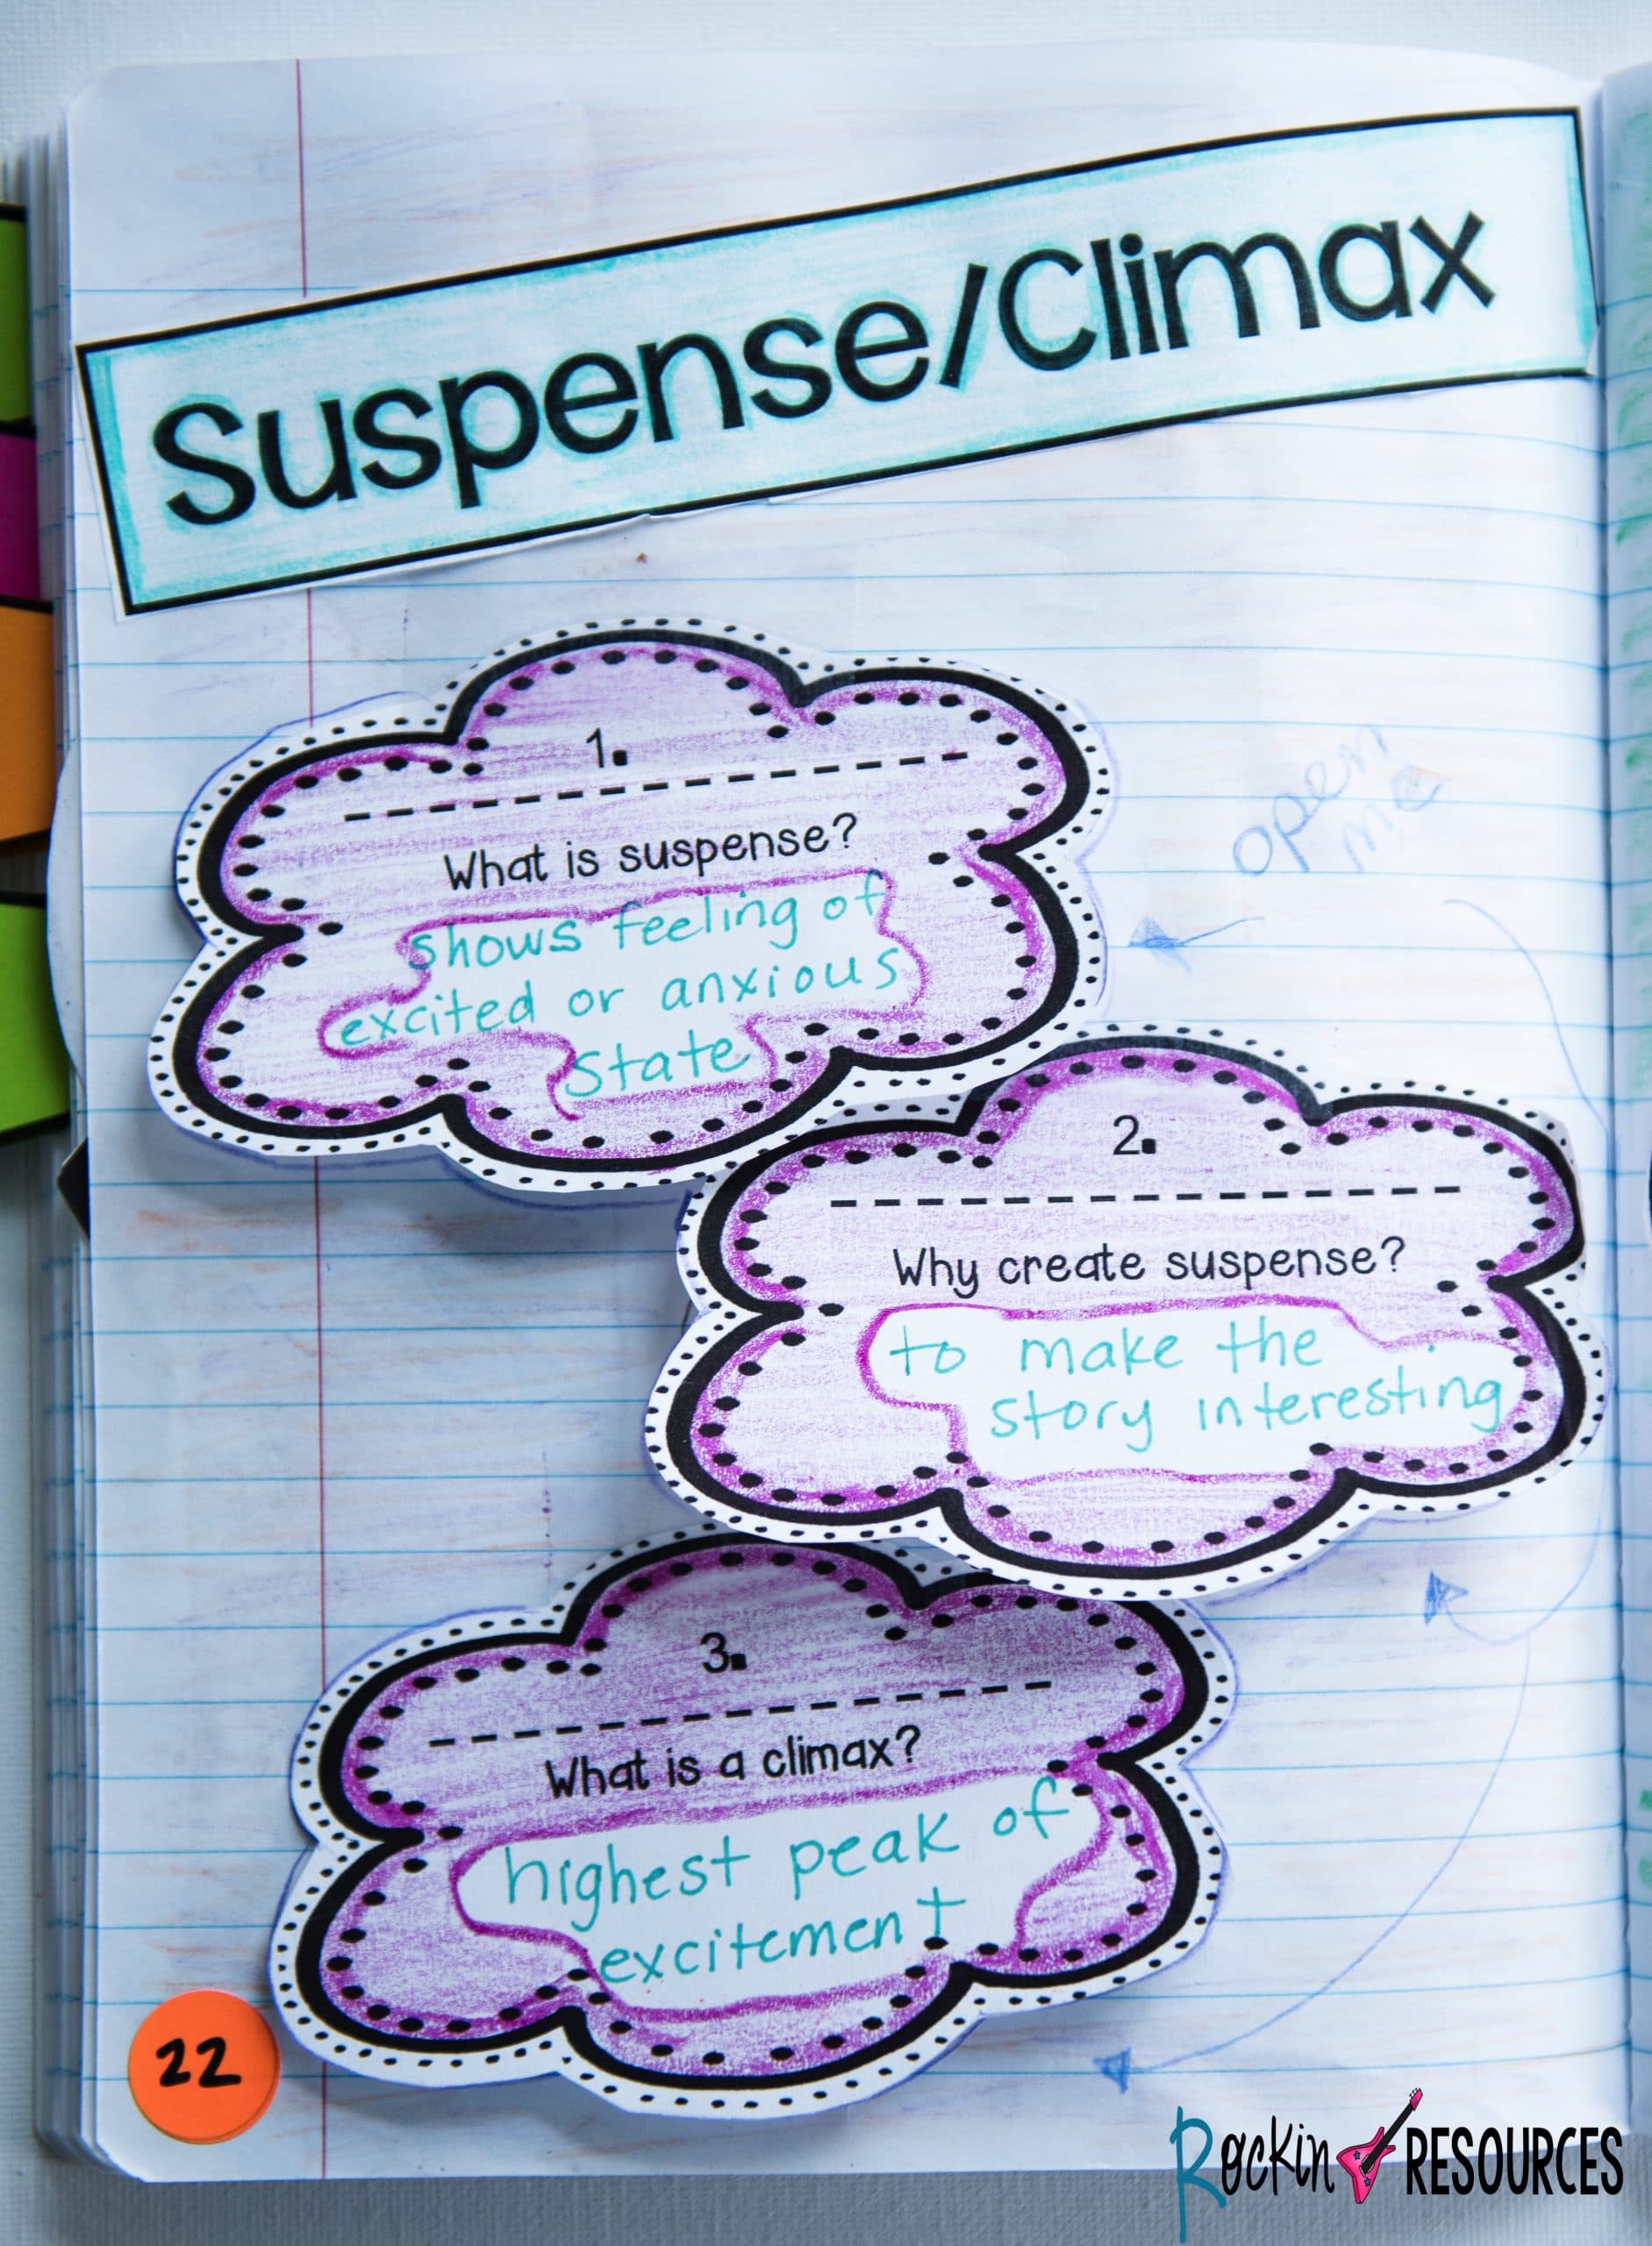 Suspense/Climax
1.
What is suspense?
shows feeling of
excited or anxious
state
open
me
2.
Why create suspense?
to make the
story interesting
3.
What is a climax?
highest peak of
excitement
22
Rockin RESOURCES